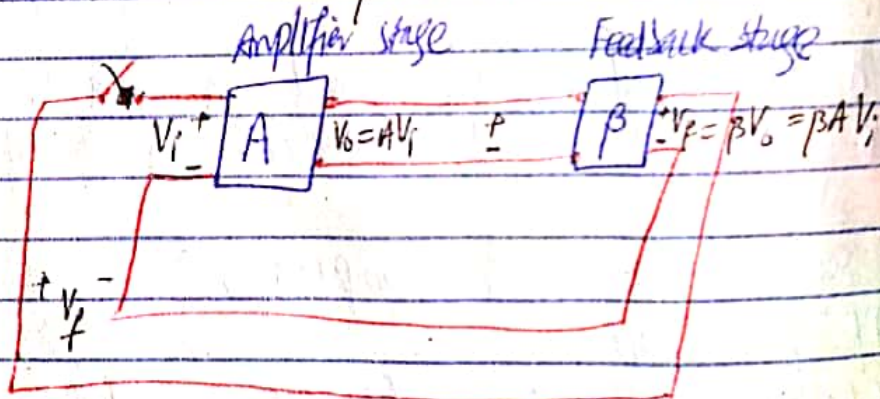 Amplifier stage Feedback stage
Vi + - A Vo = AVi + - β + - Vf = βVo = βAVi
+ Vf -